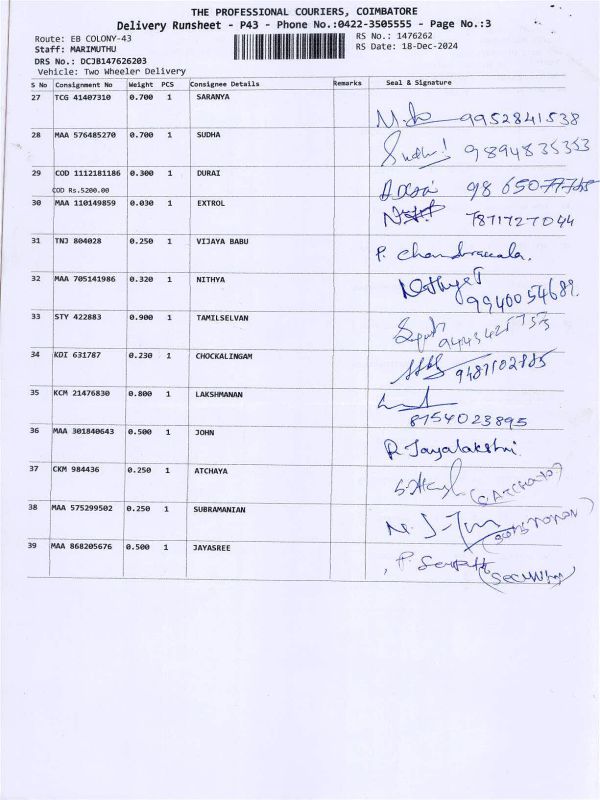 THE PROFESSIONAL COURIERS, COIMBATORE
Delivery Runsheet - P43 - Phone No.:0422-3505555 - Page No.:3
Route: EB COLONY-43 RS No.: 1476262
Staff: MARIMUTHU RS Date: 18-Dec-2024
DRS No.: DCJB147626203
Vehicle: Two Wheeler Delivery
S No Consignment No Weight PCS Consignee Details Remarks Seal & Signature
27 TCG 41407310 0.700 1 SARANYA
9952841538
28 MAA 576485270 0.700 1 SUDHA
Sudha! 9894835353
29 COD 1112181186 0.300 1 DURAI
COD Rs.5200.00
30 MAA 110149859 0.030 1 EXTROL
7871727044
31 TNJ 804028 0.250 1 VIJAYA BABU
P. Chandrakala.
32 MAA 705141986 0.320 1 NITHYA
Nithya T
9940054689.
33 STY 422883 0.900 1 TAMILSELVAN
34 KDI 631787 0.230 1 CHOCKALINGAM
35 KCM 21476830 0.800 1 LAKSHMANAN
8754023895
36 MAA 301840643 0.500 1 JOHN
R. Jayalakshmi.
37 CKM 984436 0.250 1 ATCHAYA
38 MAA 575299502 0.250 1 SUBRAMANIAN
39 MAA 868205676 0.500 1 JAYASREE
(Security)